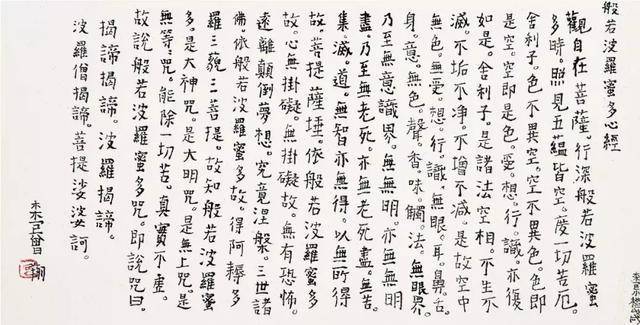 般若波羅蜜多心經
觀自在菩薩。行深般若波羅蜜
多時。照見五蘊皆空。度一切苦厄。
舍利子。色不異空。空不異色。色即
是空。空即是色。受。想。行。識。亦復
如是。舍利子。是諸法空相。不生不
滅。不垢不淨。不增不減。是故空中
無色。無受。想。行。識。無眼。耳。鼻。舌。
身。意。無色。聲。香。味。觸。法。無眼界。
乃至無意識界。無無明。亦無無明
盡。乃至無老死。亦無老死盡。無苦。
集。滅。道。無智亦無得。以無所得
故。菩提薩埵。依般若波羅蜜多
故。心無掛礙。無掛礙故。無有恐怖。
遠離顛倒夢想。究竟涅槃。三世諸
佛。依般若波羅蜜多故。得阿耨多
羅三藐三菩提。故知般若波羅蜜
多。是大神咒。是大明咒。是無上咒。是
無等。咒。能除一切苦。真實不虛。
故說般若波羅蜜多咒。即說咒曰。
揭諦揭諦。波羅揭諦。
波羅僧揭諦。菩提娑婆訶。